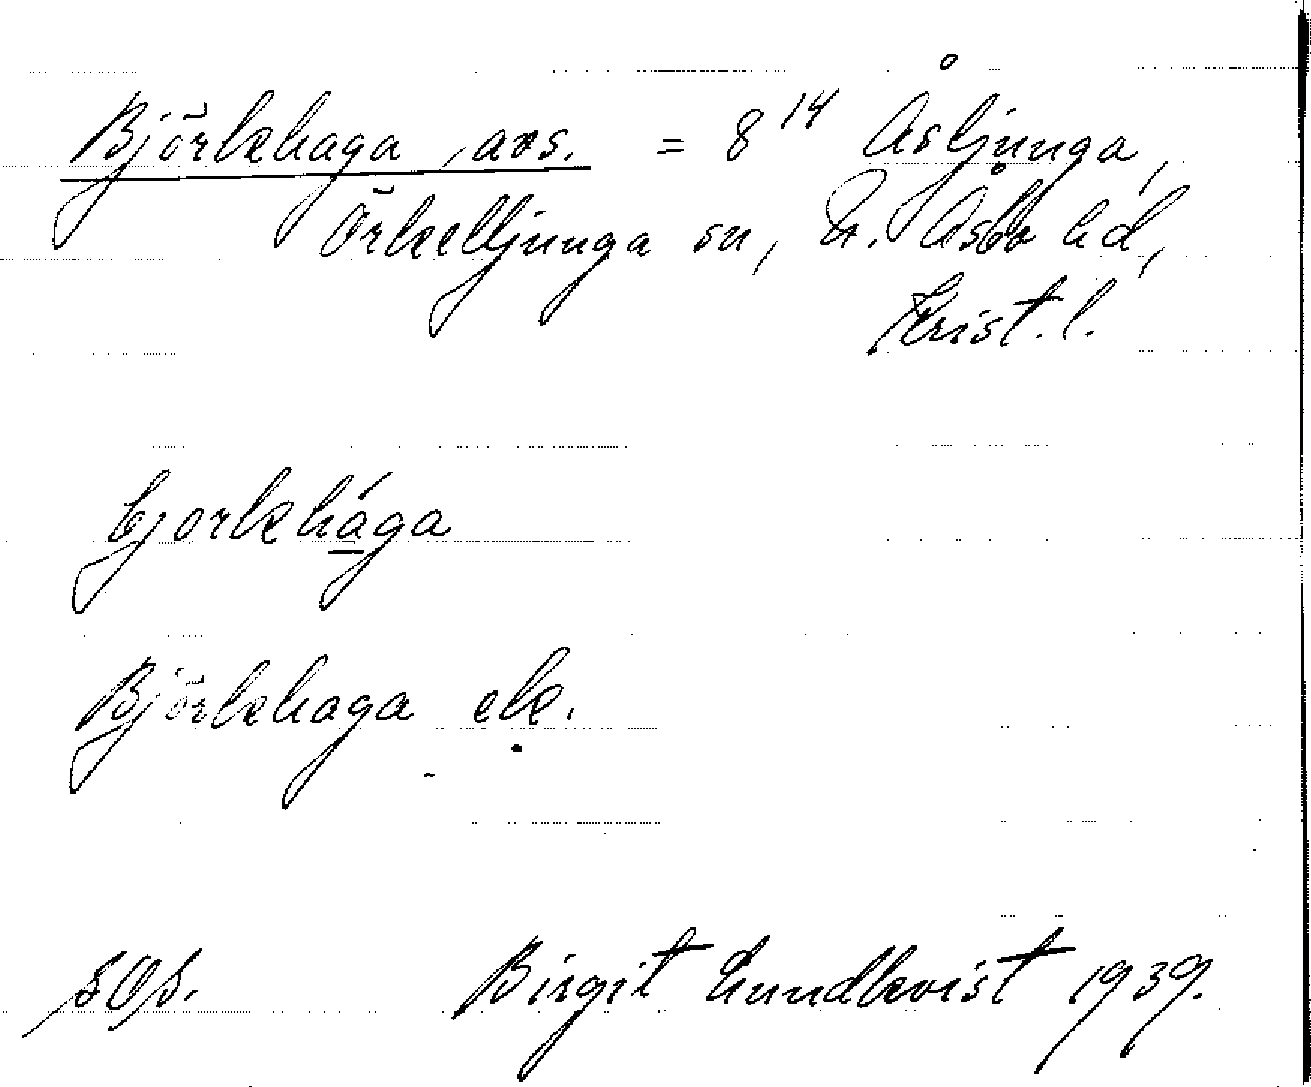 Björkhaga, avs. = 8¹⁴ Åsljunga,
Örkelljunga sn, N. Åsbo hd,
Krist. l.
bjorkhága
Björkhaga ek.
SOS. Birgit Lundkvist 1939.